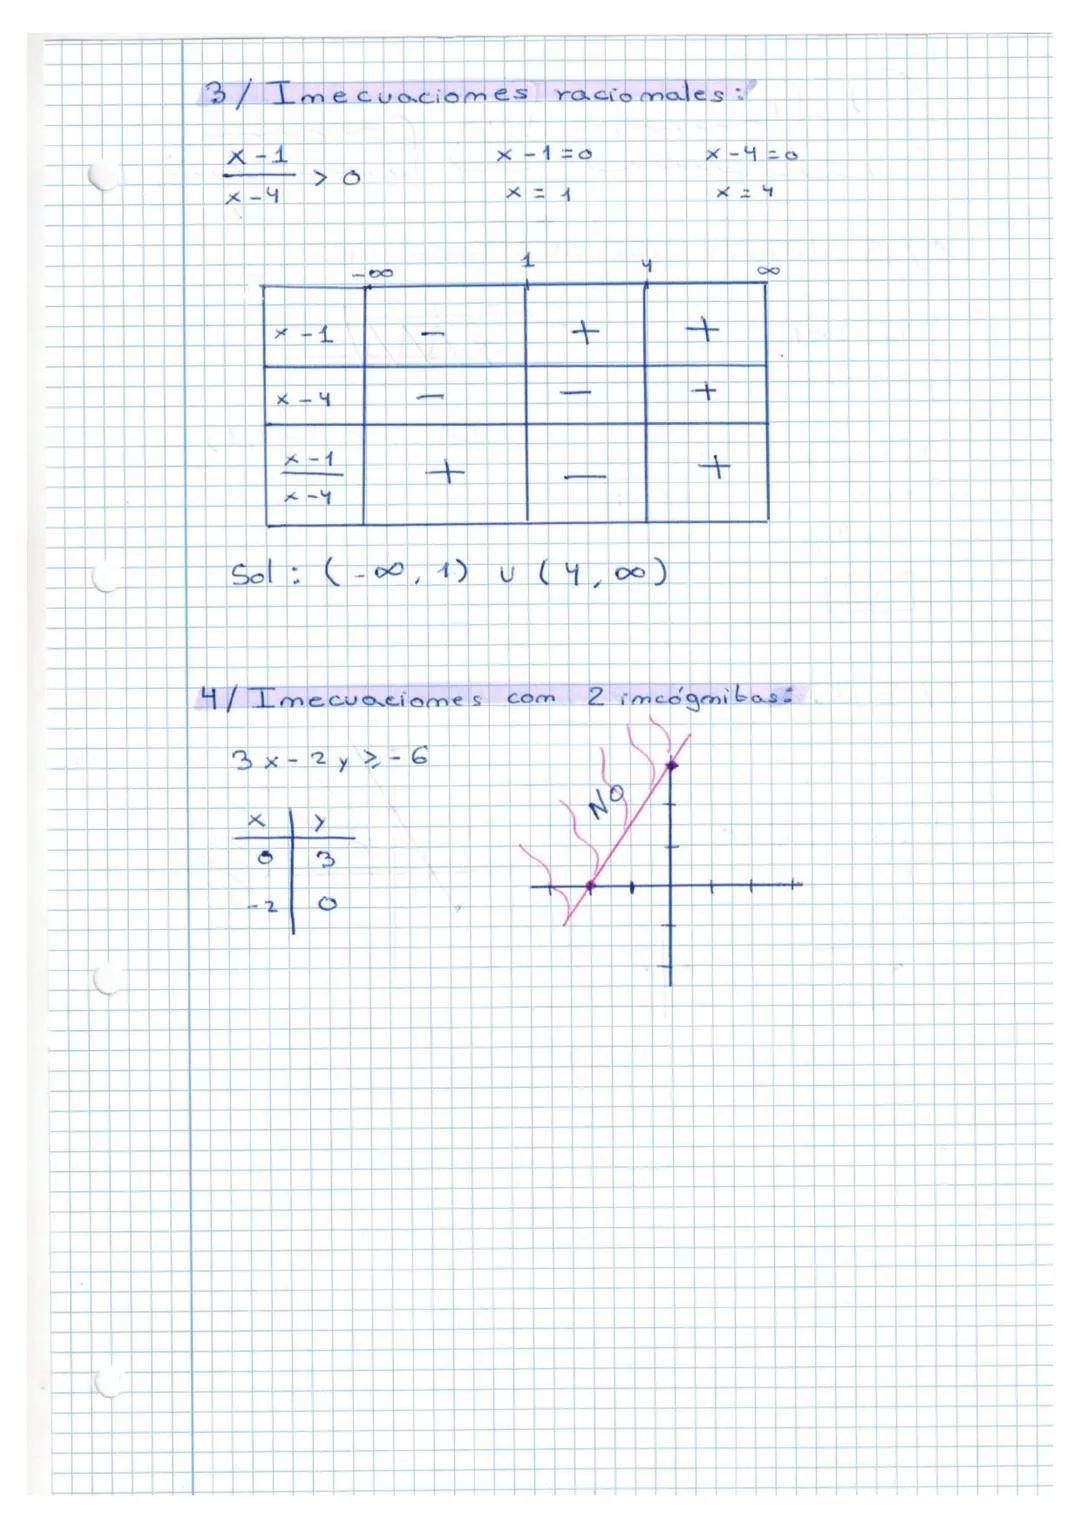 3/ Inecuaciones racionales:
x-1 / x-4 > 0
x-1=0 x-4=0
x=1 x=4
-∞ 1 4 ∞
x-1 - + +
x-4 - - +
x-1 / x-4 + - +
Sol: (-∞, 1) ∪ (4, ∞)
4/ Inecuaciones con 2 incógnitas:
3x-2y ≥ -6
x y
0 3
-2 0
NO